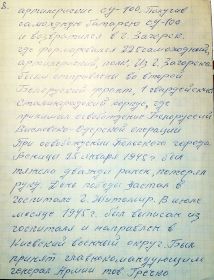 8.
артиллерию СУ-100. Получив
самоходную батарею СУ-100
и возвратился в г. Загорск.
где формировался 225 самоходный,
артиллерийский, полк, из г. Загорска
были отправлены во второй
Белорусский фронт, 1 гвардейский
Сталинградский корпус, где
принимал освобождение Белоруссии
Висловско-Одерской операции
При освобождении польского города
25 января 1945г был
тяжело дважды ранен, потерял
руку. День победы застал в
госпитале г. Житомир. В июне
месяце 1945г. был выписан из
госпиталя и направлен в
Киевский военный округ. Был
принят главнокомандующим
генерал Армии тов. Гречко